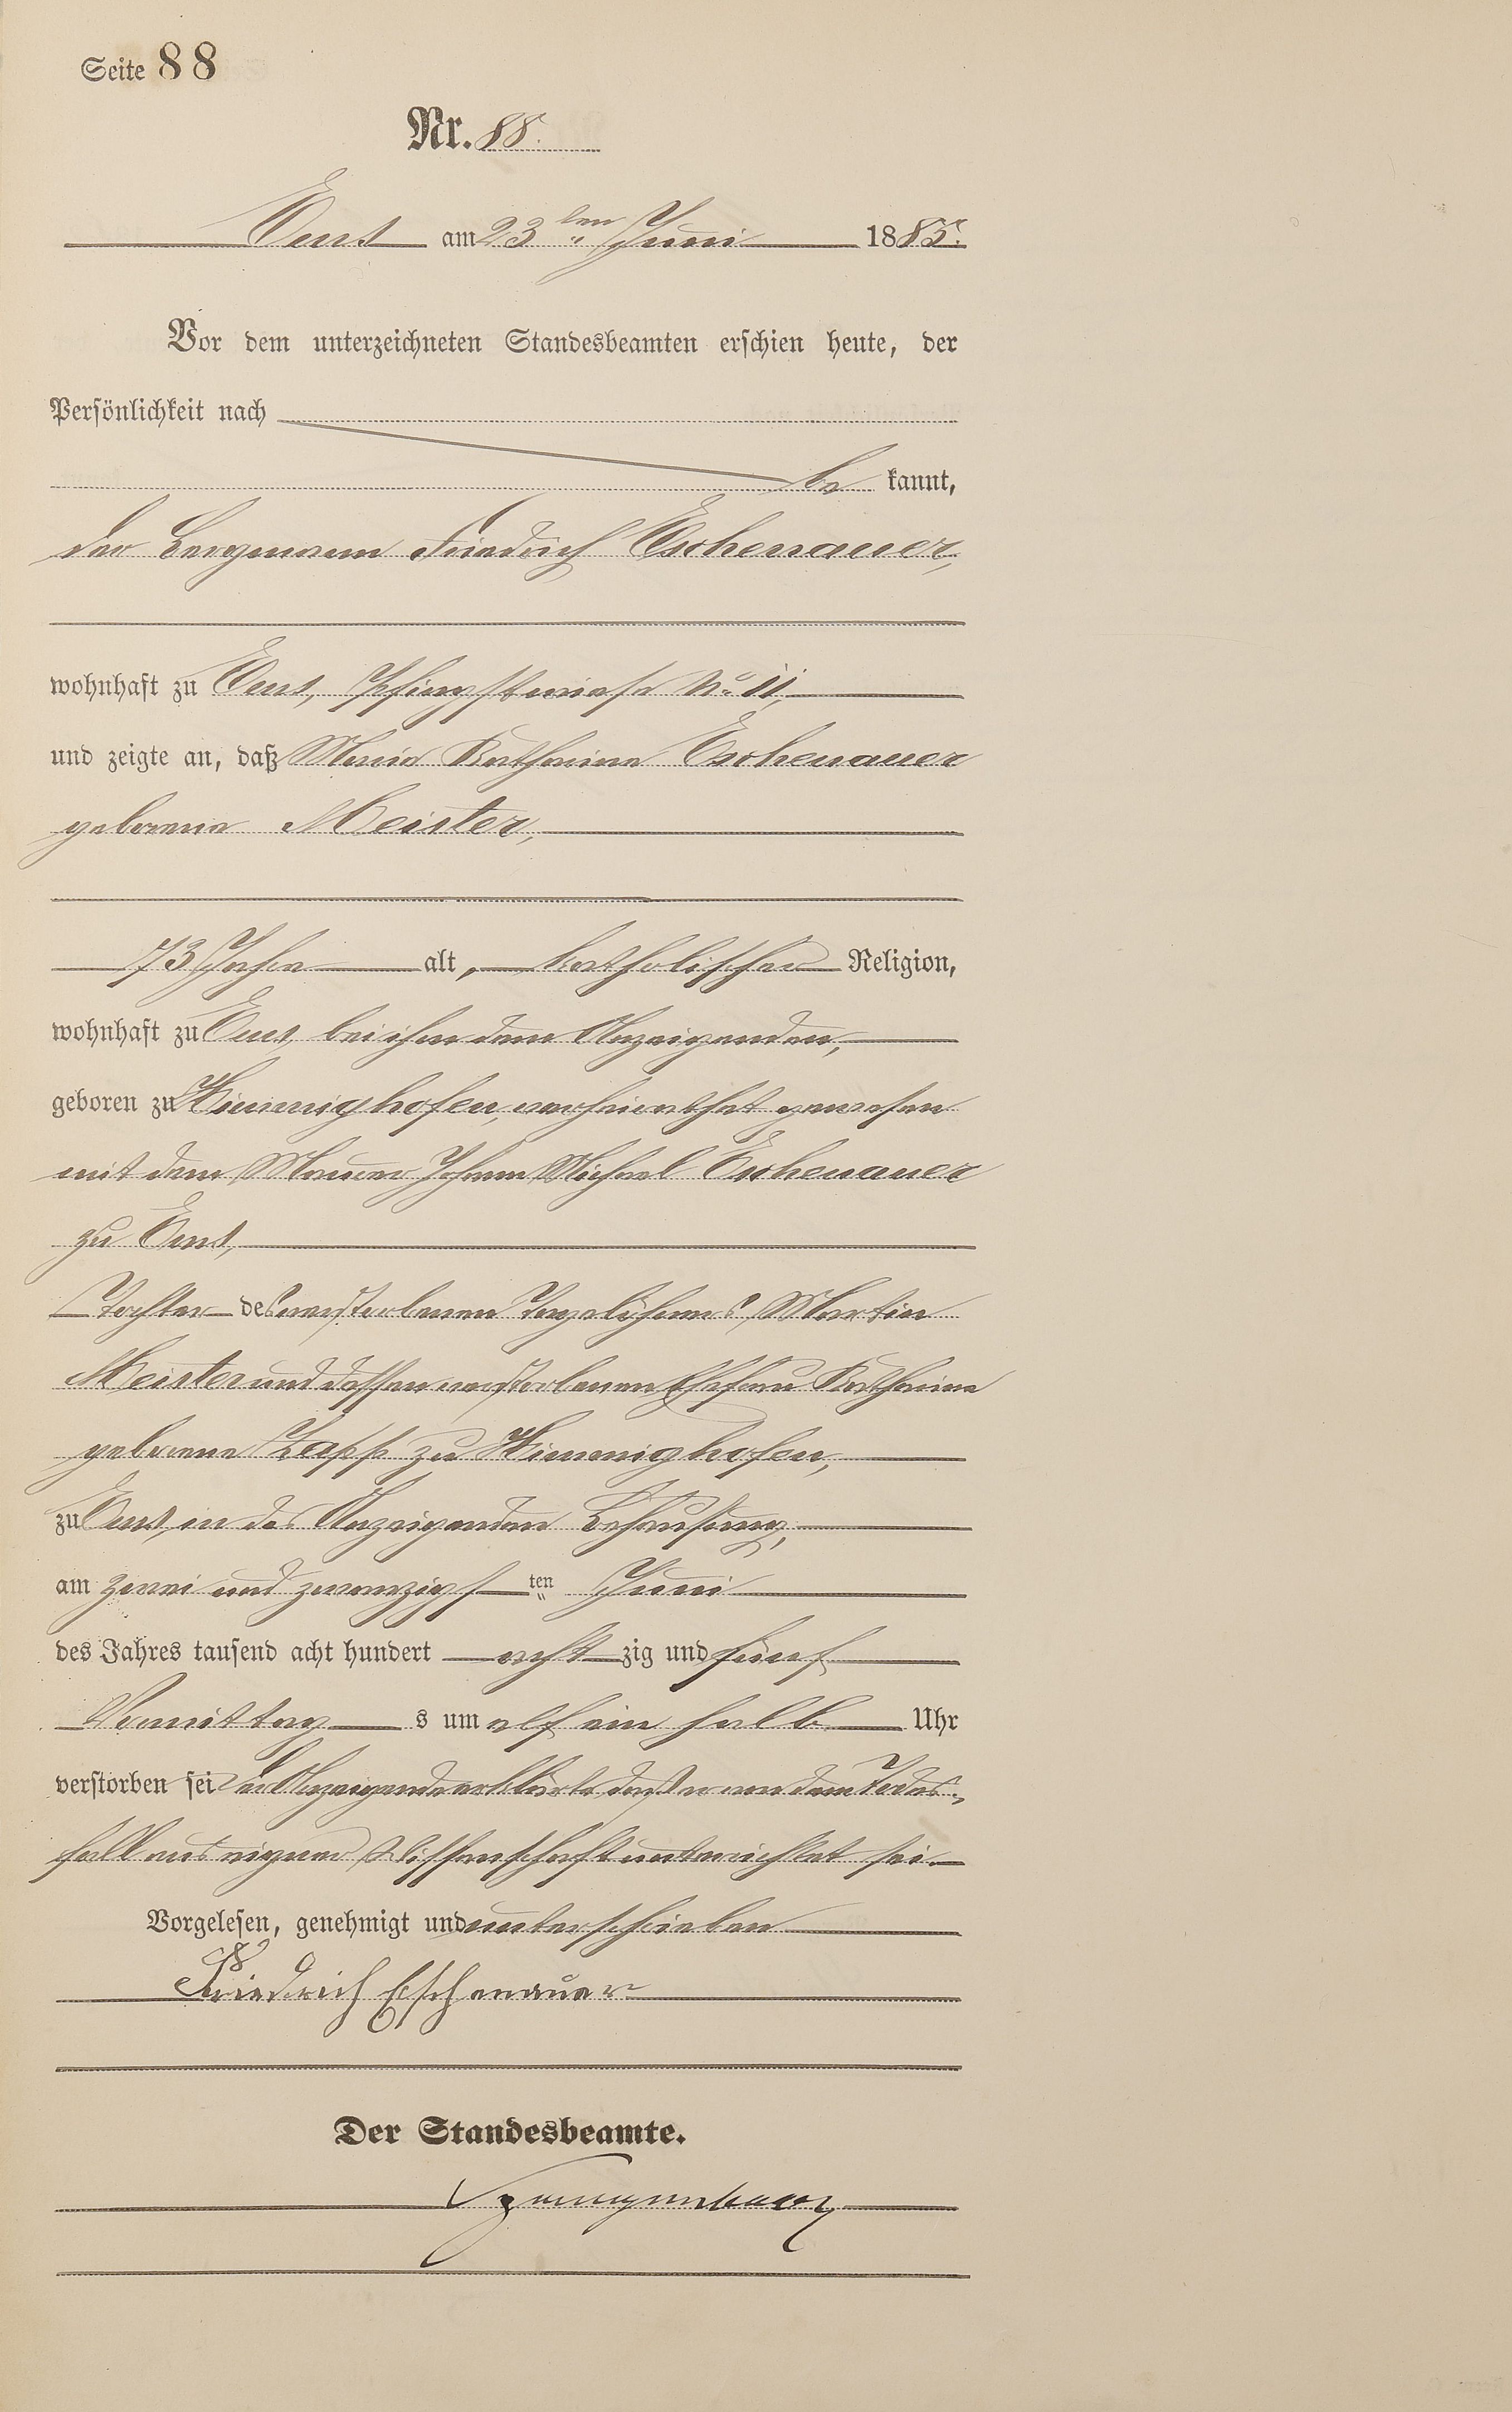 Seite 88
Nr. 88.
Ems am 23ten Juni 1885.
Vor dem unterzeichneten Standesbeamten erschien heute, der
Persönlichkeit nach
be kannt,
der Bergmann Friedrich Eschenauer,
wohnhaft zu Ems, Pfingstwiese No 11,
und zeigte an, daß Maria Katharina Eschenauer
geborene Meister,
73 Jahre alt, katholischer Religion,
wohnhaft zu Ems, bei ihm dem Anzeigenden,
geboren zu Himmighofen, verheirathet gewesen
mit dem Maurer Johann Michael Eschenauer
zu Ems,
Tochter des verstorbenen Tagelöhners Martin
Meister und dessen verstorbenen Ehefrau Katharina
geborene Zapp zu Himmighofen,
zu Ems, in des Anzeigenden Behausung,
am zwei und zwanzigsten Juni
des Jahres tausend acht hundert acht zig und fünf
Vormittag s um elf ein halb Uhr
verstorben sei. Der Anzeigende erklärte, daß er von dem Todes-
fall aus eigener Wissenschaft unterrichtet sei.
Vorgelesen, genehmigt und unterschrieben
Friedrich Eschenauer
Der Standesbeamte.